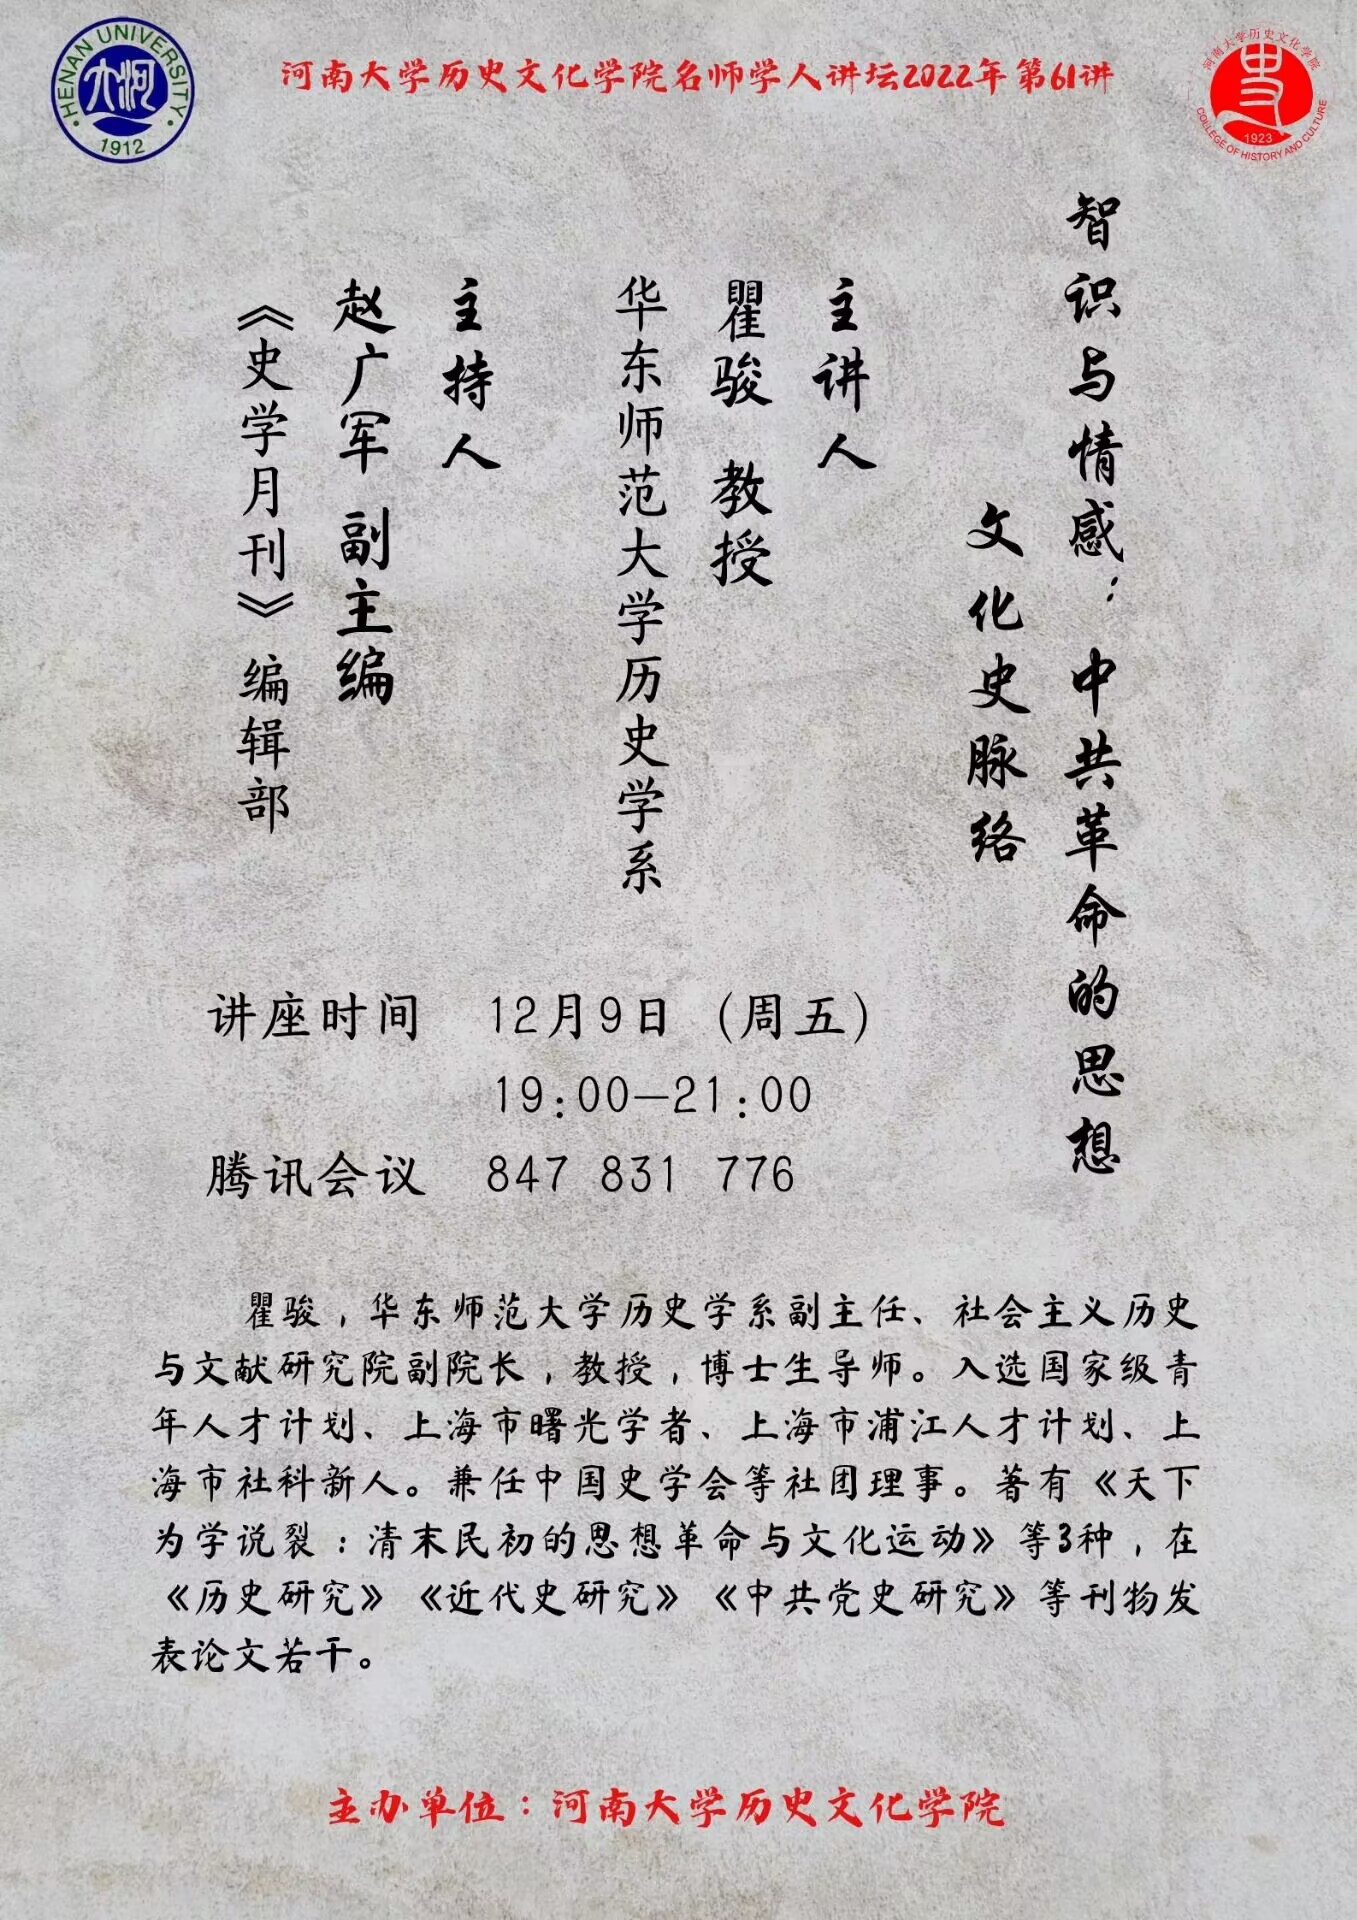 HENAN UNIVERSITY
大河
1912
河南大学历史文化学院名师学人讲坛2022年第61讲
河南大学历史文化学院
史
1923
COLLEGE OF HISTORY AND CULTURE
智识与情感：中共革命的思想
文化史脉络
主讲人
瞿骏 教授
华东师范大学历史学系
主持人
赵广军 副主编
《史学月刊》编辑部
讲座时间 12月9日（周五）
19:00—21:00
腾讯会议 847 831 776
瞿骏，华东师范大学历史学系副主任、社会主义历史
与文献研究院副院长，教授，博士生导师。入选国家级青
年人才计划、上海市曙光学者、上海市浦江人才计划、上
海市社科新人。兼任中国史学会等社团理事。著有《天下
为学说裂：清末民初的思想革命与文化运动》等3种，在
《历史研究》《近代史研究》《中共党史研究》等刊物发
表论文若干。
主办单位：河南大学历史文化学院